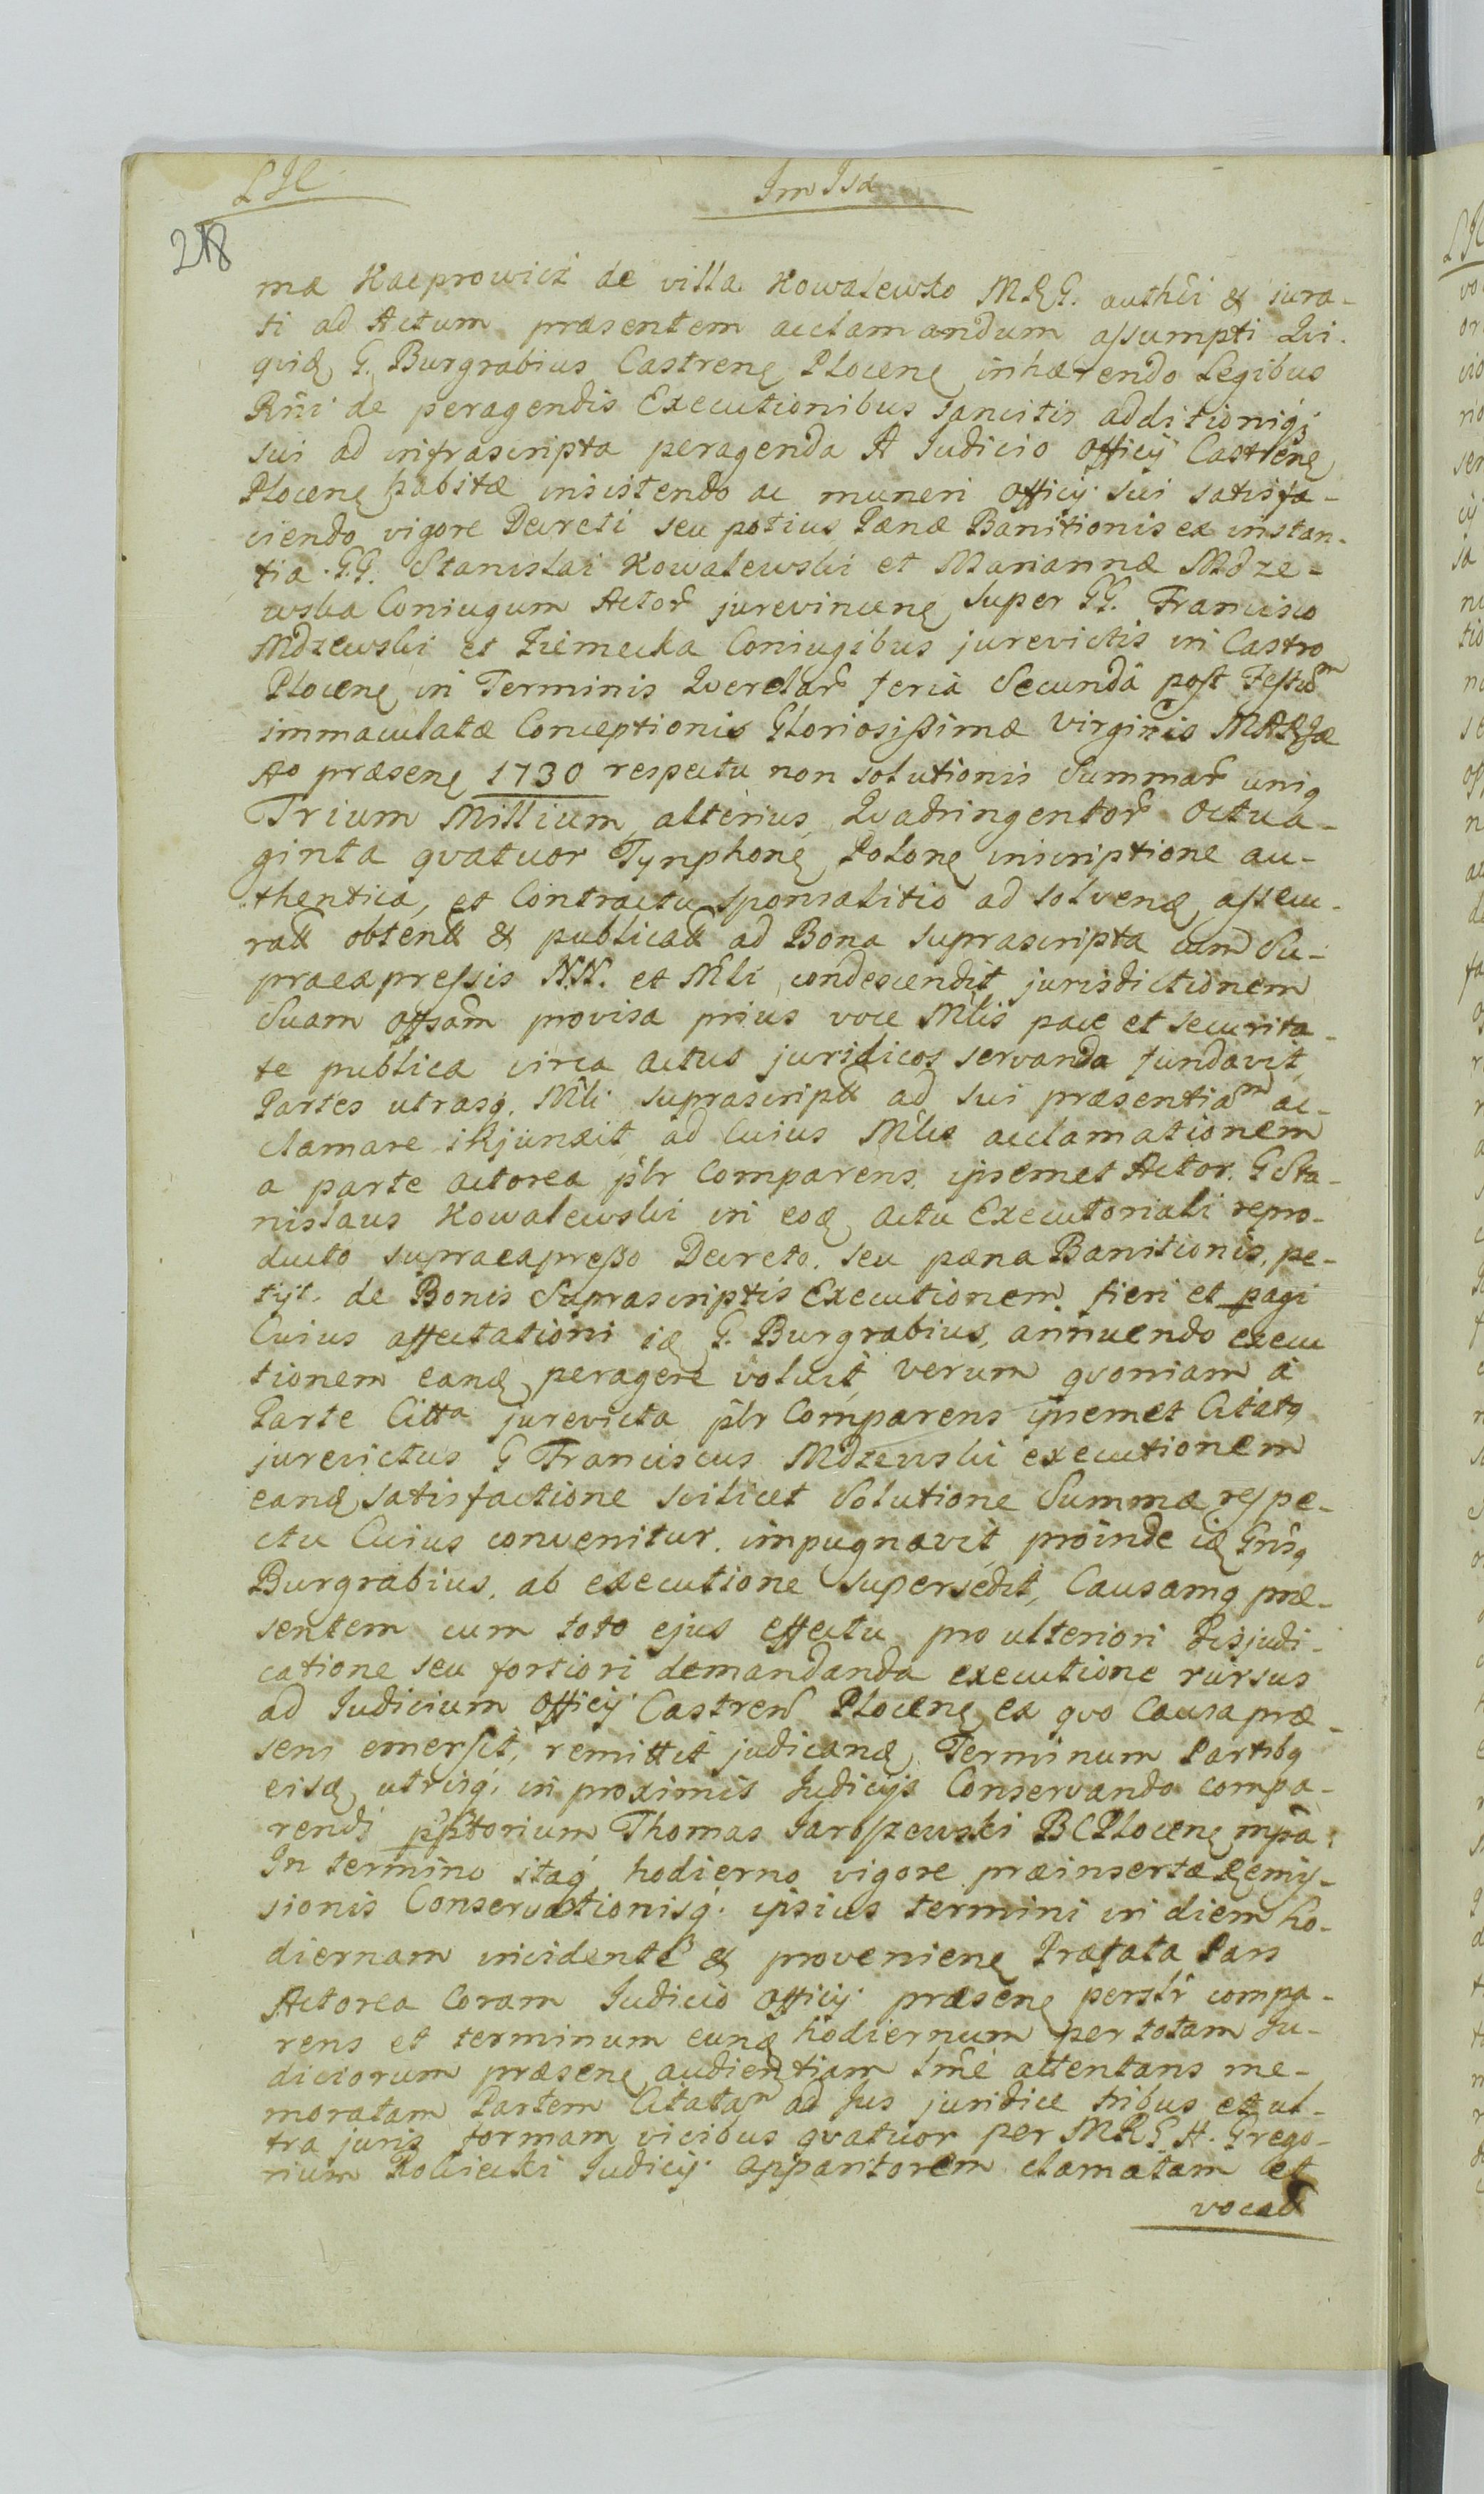 Im Isa
218
ma Kacprowicz de villa Kowalewko MRG. authci & jura-
ti ad Actum præsentem acclamandum assumpti Qui.
qvid G. Burgrabius Castrens Plocens inhærendo Legibus
Rñi de peragendis Executionibus sancitis additioniq;
sui ad infrascripta peragenda A Iudicio Officij Castrens
Plocens habitæ insistendo ac muneri Officij sui satisfa-
ciendo vigore Decreti seu potius Pænæ Banitionis ex instan-
tia GG. Stanislai Kowalewski et Mariannæ Mdze-
wska Coniugum Actor jurevincens super GG. Francisco
Mdzewski et Ziemecka Coniugibus jurevictis in Castro
Plocens in Terminis Qverelar feria Secunda post Festum
immaculatæ Conceptionis Gloriosissimæ Virginis MARIÆ
Ao præsens 1730 respectu non solutionis Summar unig
Trium Millium, alterius Qvadringentor Octua-
ginta qvatuor Tynphons Polons inscriptione au-
thentica, et Contractu sponsalitio ad solvend assecu-
rat obtent & publicat ad Bona suprascripta cum Su-
praexpressis N.N. et Mli condescendit jurisdictionem
Suam Offsam provisa prius voce Mlis pace et securita-
te publica circa actus juridicos servanda fundavit,
Partes utrasq. Mli suprascript ad sui præsentiam ac-
clamare iñjunxit ad Cuius Mlis acclamationem
a parte actorea plr Comparens ipsemet Actor. G Sta-
nislaus Kowalewski in eod actu Executoriali repro-
ducto supraexpresso Decreto. seu pæna Banitionis, pe-
tijt. de Bonis Suprascriptis Executionem fieri et pagi
Cuius affectationi id G. Burgrabius, annuendo execu
tionem eand peragere voluit, verum qvoniam à
Parte Citta jurevicta plr Comparens ipsemet Citatg
jurevictus G Franciscus Mdzewski executionem
eand satisfactione scilicet Solutione Summæ respe-
ctu Cuius convenitur. impugnavit, proinde id Gñsg
Burgrabius. ab executione supersedit, Causamq præ-
sentem cum toto ejus effectu pro ulteriori Disjudi-
catione seu fortiori demandanda executione rursus
ad Iudicium Officij Castren Plocens, ex qvo Causa præ-
sens emersit, remittit judicand. Terminum Partibg
eisd utrisq. in proximis Iudicijs Conservando compa-
rendi pptorium Thomas Jaroszewski BCPlocens mpa.
In termino itaq hodierno vigore præinsertæ Remis-
sionis Conservationisq. ipsius termini in diem ho-
diernam incidente & proveniens Præfata Pars
Actorea Coram Iudicio Officij præsens perslr compa-
rens et terminum eund hodiernum per totam Iu-
diciorum præsens audientiam tme attentans me-
moratam Partem Citatam ad Ius juridice tribus et ul-
tra juris formam vicibus qvatuor per MRG. H. Grego-
rium Judicij apparitorem clamatam et
vocat